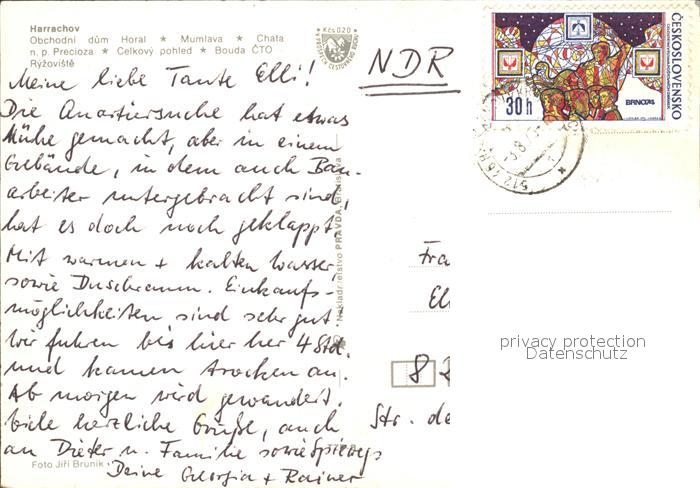 Harrachov
Obchodní dům Horal ★ Mumlava ★ Chata
n. p. Precioza ★ Celkový pohled ★ Bouda ČTO
Rýžoviště
Kčs 0,20
NDR
ČESKOSLOVENSKO
30 h
BRNO 74
Meine liebe Tante Elli!
Die Quartiersuche hat etwas
Mühe gemacht, aber in einem
Gebäude, in dem auch Bau-
arbeiter untergebracht sind,
hat es doch noch geklappt.
Mit warmen + kalten Wasser,
sowie Duschraum. Einkaufs-
möglichkeiten sind sehr gut.
Wir fuhren bis hier her 4 Std.
und kamen trocken an.
Ab morgen wird gewandert.
Viele herzliche Grüße, auch
an Dieter u. Familie sowie
Deine Georgia + Rainer
Foto Jiří Bruník
Nakladatelství PRAVDA, Bratislava
Fra
Ell
8
Str. de
privacy protection
Datenschutz